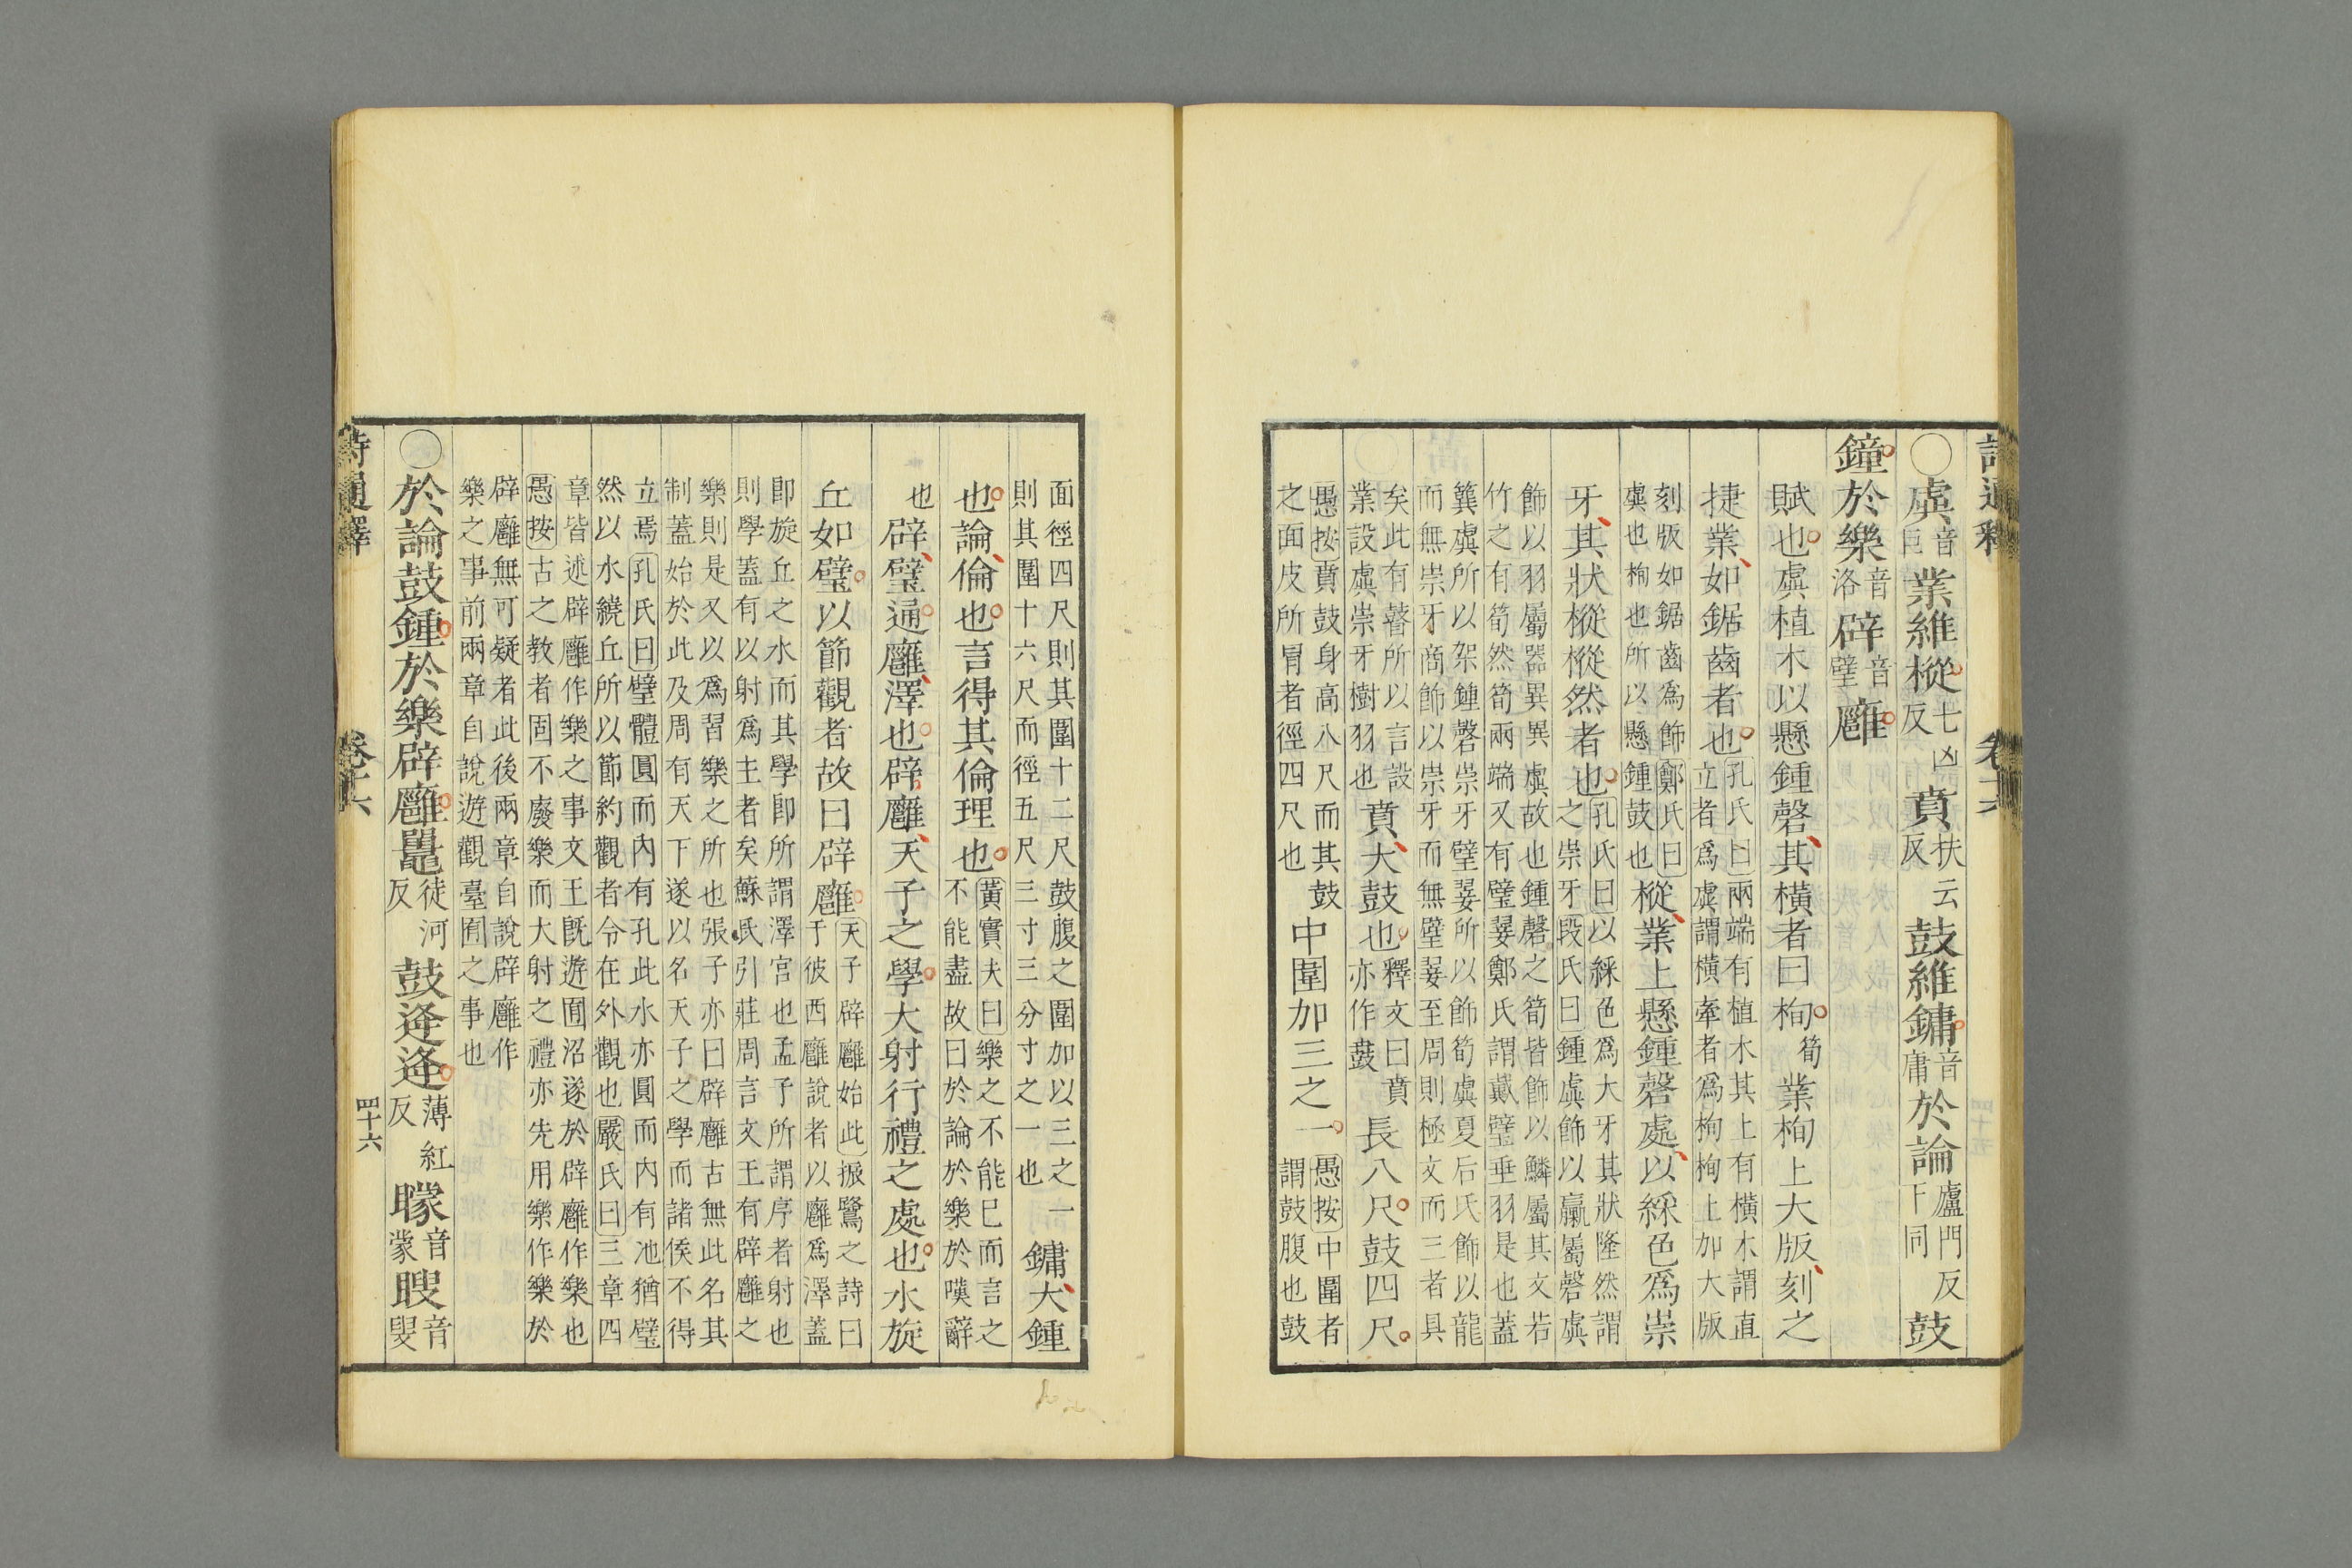 詩通釋　卷十六
○虡音巨業維樅七凶反賁扶云反鼓維鏞音庸於論盧門反下同鼓
鐘於樂音洛辟音璧廱
賦也虡植木以懸鍾磬其橫者曰栒筍業栒上大版刻之
捷業如鋸齒者也孔氏曰兩端有植木其上有橫木謂直
立者爲虡謂橫牽者爲栒栒上加大版
刻版如鋸齒爲飾鄭氏曰
虡也栒也所以懸鍾鼓也樅業上懸鍾磬處以綵色爲崇
牙其狀樅樅然者也孔氏曰以綵色爲大牙其狀隆然謂
之崇牙段氏曰鍾虡飾以臝屬磬虡
飾以羽屬器異異虡故也鍾磬之筍皆飾以鱗屬其文若
竹之有筍然筍兩端又有璧翣鄭氏謂戴璧垂羽是也蓋
簨虡所以架鍾磬崇牙璧翣所以飾筍虡夏后氏飾以龍
而無崇牙商飾以崇牙而無璧翣至周則極文而三者具
矣此有瞽所以言設
業設虡崇牙樹羽也賁大鼓也釋文曰賁亦作鼖長八尺鼓四尺
愚按賁鼓身高八尺而其鼓
之面皮所冒者徑四尺也中圍加三之一愚按中圍者
謂鼓腹也鼓
面徑四尺則其圍十二尺鼓腹之圍加以三之一
則其圍十六尺而徑五尺三寸三分寸之一也鏞大鍾
也論倫也言得其倫理也黃實夫曰樂之不能已而言之
不能盡故曰於論於樂於嘆辭
也辟璧通廱澤也辟廱天子之學大射行禮之處也水旋
丘如璧以節觀者故曰辟廱天子辟廱始此振鷺之詩曰
于彼西廱說者以廱爲澤蓋
卽旋丘之水而其學卽所謂澤宮也孟子所謂序者射也
則學蓋有以射爲主者矣蘇氏引莊周言文王有辟廱之
樂則是又以爲習樂之所也張子亦曰辟廱古無此名其
制蓋始於此及周有天下遂以名天子之學而諸侯不得
立焉孔氏曰璧體圓而內有孔此水亦圓而內有地猶璧
然以水繞丘所以節約觀者令在外觀也嚴氏曰三章四
章皆述辟廱作樂之事文王旣遊囿沼遂於辟廱作樂也
愚按古之教者固不廢樂而大射之禮亦先用樂作樂於
辟廱無可疑者此後兩章自說辟廱作
樂之事前兩章自說遊觀臺囿之事也
○於論鼓鍾於樂辟廱鼉徒河反鼓逄逄薄紅反矇音蒙瞍音叟
詩通釋　卷十六　四十六